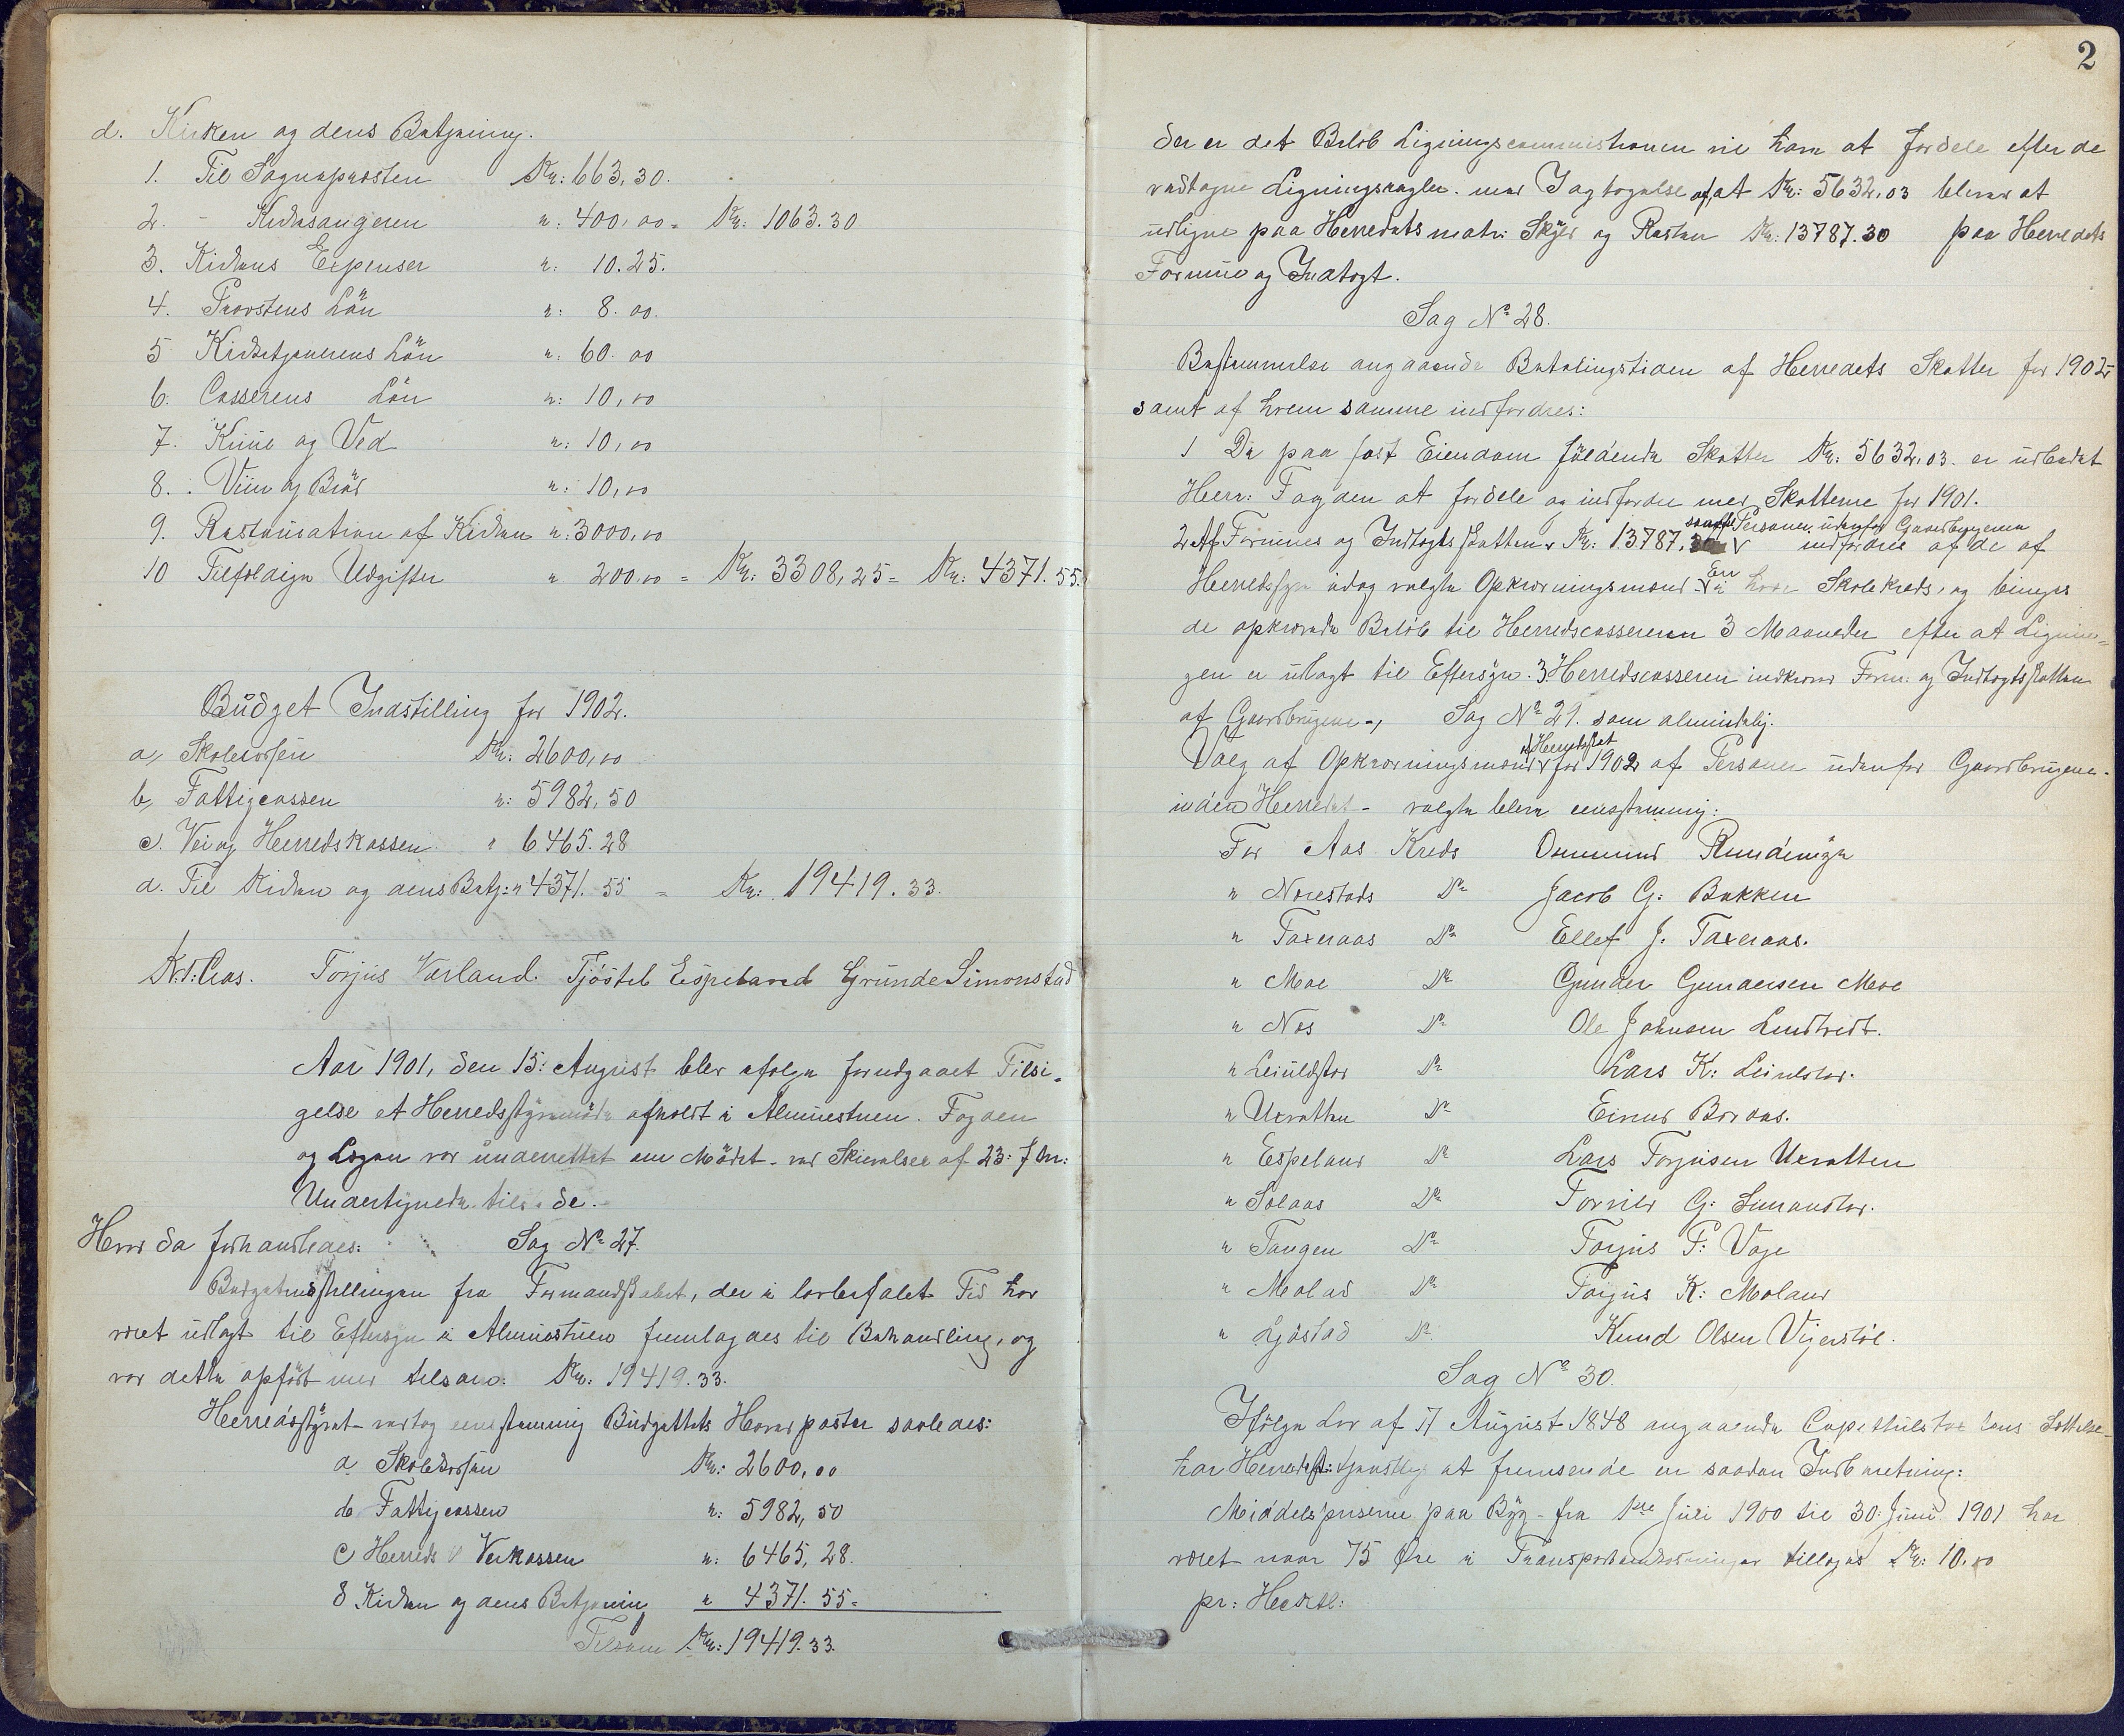 d. Kirken og dens Betjening.
1. Til Sogneprosten Kr: 663,30.
2. - Kirkesangeren ": 400,00 = Kr: 1063.30
3. Kirkens Expenser ": 10.25.
4. Provstens Lön ": 8.00.
5 Kirketjenerens Lön ": 60.00
6. Casserens Lön ": 10,00
7. Kiüü og Ved ": 10,00
8. Viin og Bröd ": 10,00
9. Restauration af Kirken ": 3000,00
10 Tilfeldige Udgifter " 200,00 = Kr: 3308,25 = Kr: 4371.55.
Büdget Indstilling for 1902.
a, Skolecassen Kr: 2600,00
b, Fattigcassen ": 5982,50
c. Vei og Herredskassen " 6465.28
d. Til Kirken og dens Betj: " 4371.55 = Kr: 19419.33.
Torjüs Varland. Tjöstel Espeland Gründe Simonstad
Aar 1901, den 15: August blev efølge forudgaaet Tilsi-
gelse et Herredsstyremöde afholdt i Almüestuen. Fogden
og Legen var ünderrettet om Mödet ved Skrivelser af 23: f. m:
Undertegnede tilstede.
Hvor da forhandledes: Sag No 27.
Budgetindstillingen fra Formandskabet, der i lovbefalet Tid har
været üdlagt til Eftersyn i Almüestuen fremlagdes til Behandling, og
var dette opfört med tilsam: Kr: 19419.33.
Herredsstyret vedtog eenstemmig Büdgettets Hovedposter saaledes:
a Skolecassen Kr: 2600,00
b Fattigcassen ": 5982,50
c Herreds & Veikassen ": 6465,28.
d Kirken og dens Betjening " 4371.55 =
Tilsam Kr: 19419.33.
2
der er det Belöb Ligningscommisionen vil have at fordele efter de
vedtagne Ligningsregler. med Iagtagelse af, at Kr: 5632,03 bliver at
üdligne paa Herredets matr: Skyld og Resten Kr: 13787.30 paa Herredets
Formüe og Indtægt.
Sag No 28.
Bestemmelse angaaende Betalingstiden af Herredets Skatter for 1902
samt af hvem samme indfordres:
1 De paa fast Eiendom faldende Skatter Kr: 5632,03. er üdbedet
Herr: Fogden at fordele og indfordre med Skatterne for 1901.
2 Af Formues og Indtægts skatten Kr: 13787,30 Personer udenfor Gaardbrugerne indfordres af de af
Herredsstyr idag valgte Opkrævningsmænd Een i hver Skolekreds, og bringes
de opkrævede Belöb til Herredscassereren 3 Maaneder efter at Lignin=
gen er üdlagt til Eftersyn. 3. Herredscasseren indkræver Form: og Indtægtsskatten
af Gaardbrügerne, Sag No 29. som almindelig.
Valg af Opkrævningsmænd af Herredsskat for 1902 af Personer üdenfor Gaardbrügerne
inden Herredet - valgte blev eenstemmig:
For Aas Kreds Osmund Rundemyr
" Nævestads Do Jacob G: Bakken
" Taxeraas Do Ellef J. Taxeraas.
" Moe Do Gunder Gundersen Moe
" Nes Do Ole Johnsen Lindtvedt.
" Leiulfstad Do Lars K: Leivlstad.
" Uxvatten Do Einar Boraas.
" Espeland Do Lars Torjüsen Uxvatten
" Solaas Do Torvild G: Simonstad.
" Tangen Do Torjüs P: Vage
" Molad Do Torjüs K: Moland
" Ljöstad Do Knud Olsen Vigerstöl.
Sag No 30.
Ifölge Lov af 17 Aügüst 1848 angaaende Capitülstaxtens Sættelse
har Herredsst: at fremsende en saadan Indberetning:
Middelspriserne paa Byg fra 1ste Jüli 1900 til 30: Jüni 1901 har
været naar 75 Øre i Transportomkostninger tillægges Kr: 10.00
pr: Hectol: